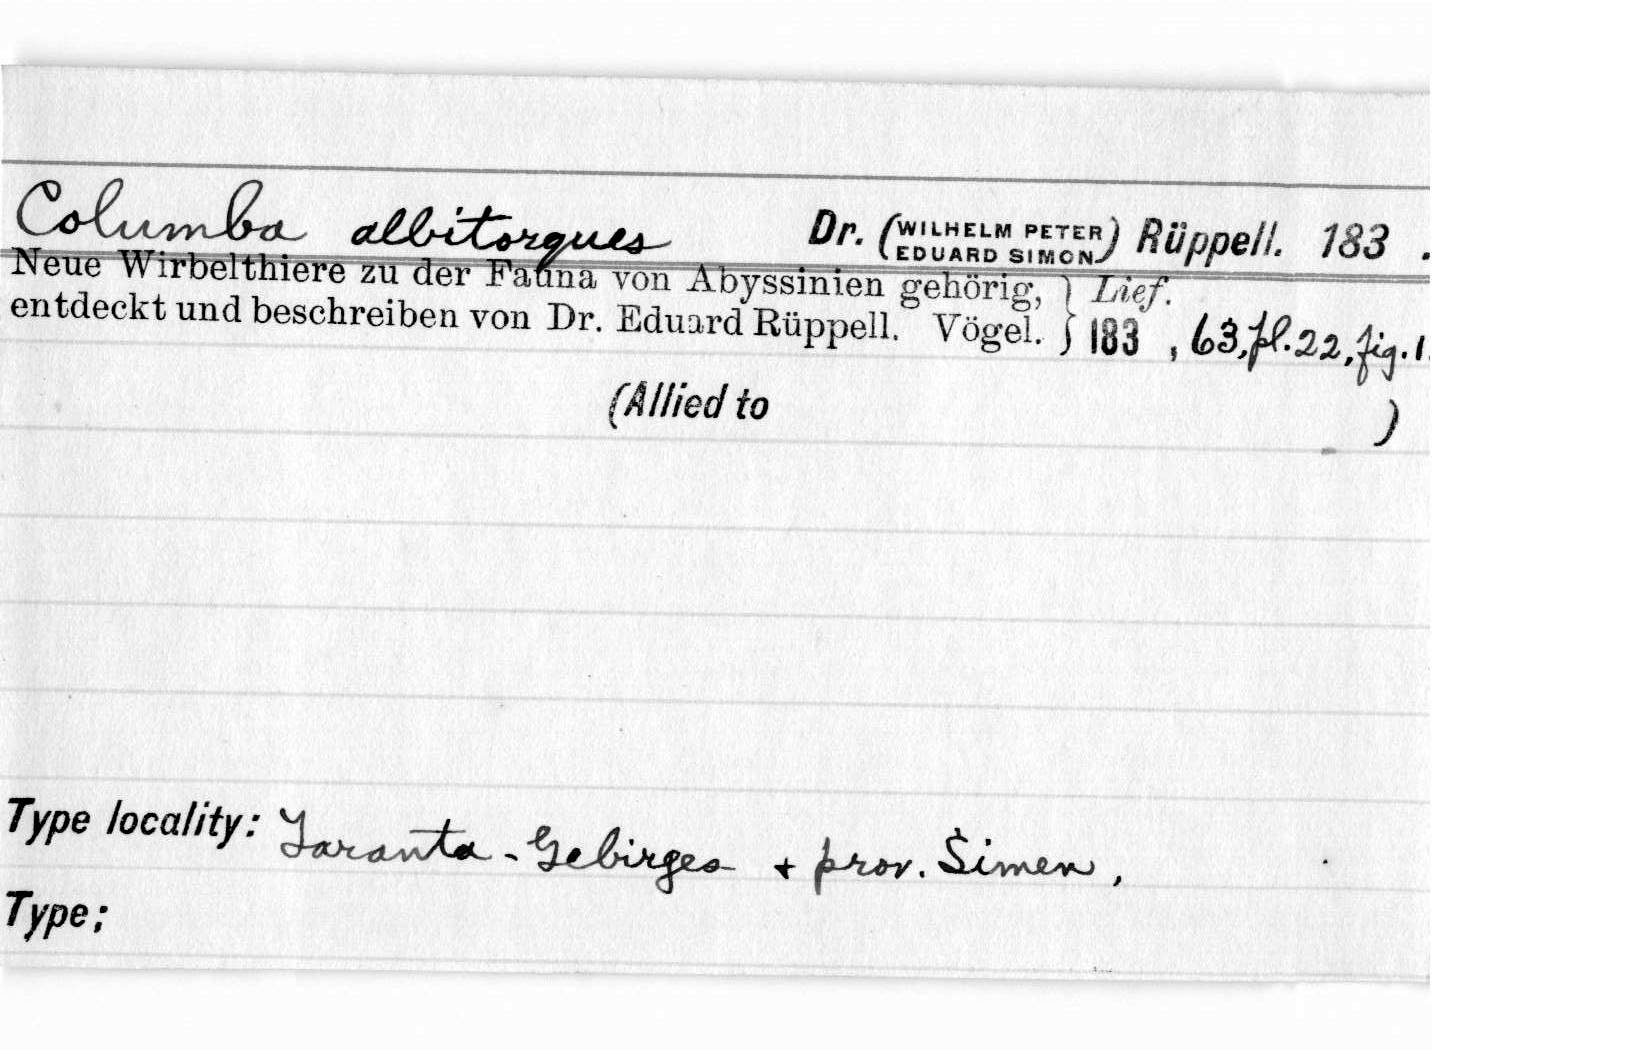 Columba albitorques Dr. (WILHELM PETER EDUARD SIMON) Rüppell. 183 .
Neue Wirbelthiere zu der Fauna von Abyssinien gehörig, } Lief.
entdeckt und beschreiben von Dr. Eduard Rüppell. Vögel. } 183 , 63, pl. 22, fig. 1.
(Allied to )
Type locality: Taranta-Gebirges + prov. Simen,
Type;